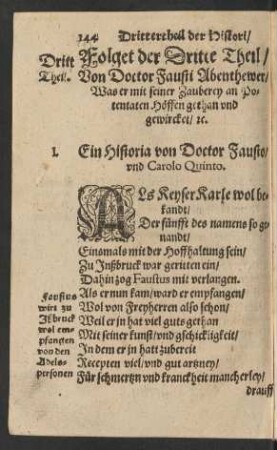 144 Drittertheil der Histori/
Dritt Theil.
Folget der Dritte Theil/
Von Doctor Fausti Abenthewer/
Was er mit seiner Zauberey an Po-
tentaten Höffen gethan vnd
gewircket/ ꝛc.
1. Ein Historia von Doctor Fausto/
vnd Carolo Quinto.
ALs Keyser Karle wol be-
kandt/
Der fünfft des namens so ge-
nandt/
Einsmals mit der Hoffhaltung sein/
Zu Inßbruck war geritten ein/
Dahin zog Faustus mit verlangen.
Als er nun kam/ ward er empfangen/
Wol von Freyherren also schon/
Weil er jn hat viel guts gethan
Mit seiner kunst/ vnd gschickligkeit/
In dem er jn hatt zubereit
Recepten viel/ vnd gut artzney/
Für schmertzn vnd kranckheit mancherley/
drauff
Faustus
wirt zu
Jßbruck
wol em-
pfangen
von den
Adels-
personen